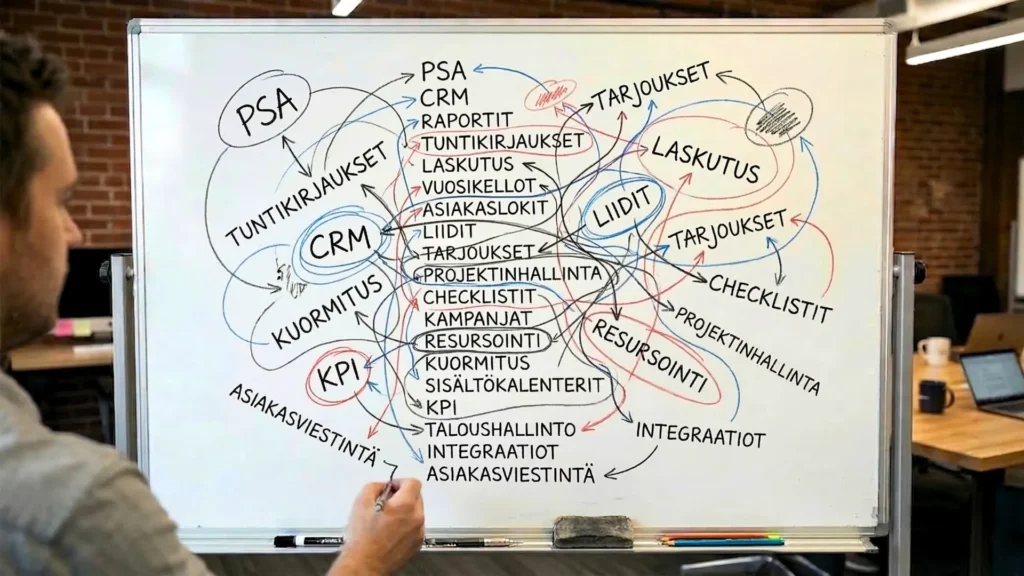 PSA
TUNTIKIRJAUKSET
CRM
KUORMITUS
KPI
ASIAKASVIESTINTÄ
PSA
CRM
RAPORTIT
TUNTIKIRJAUKSET
LASKUTUS
VUOSIKELLOT
ASIAKASLOKIT
LIIDIT
TARJOUKSET
PROJEKTINHALLINTA
CHECKLISTIT
KAMPANJAT
RESURSOINTI
KUORMITUS
SISÄLTÖKALENTERIT
KPI
TALOUSHALLINTO
INTEGRAATIOT
ASIAKASVIESTINTÄ
TARJOUKSET
LASKUTUS
LIIDIT
TARJOUKSET
CHECKLISTIT
PROJEKTINHALLINTA
RESURSOINTI
INTEGRAATIOT